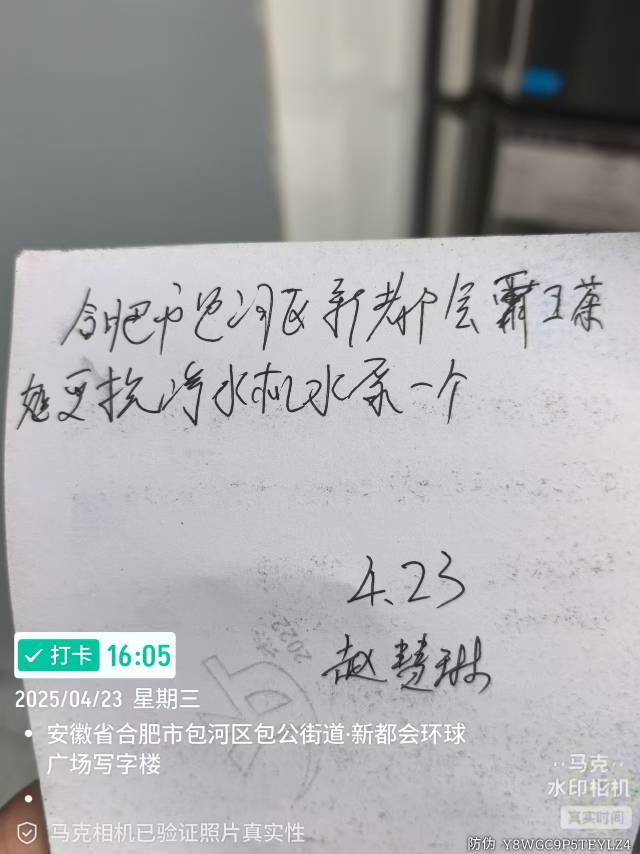 合肥市包河区新都会霸王茶
姬更换净水机水泵一个
4.23
赵慧琳
2022
打卡 16:05
2025/04/23 星期三
安徽省合肥市包河区包公街道·新都会环球
广场写字楼
马克
水印相机
真实时间
马克相机已验证照片真实性
防伪 Y8WGC9P5TEYLZ4